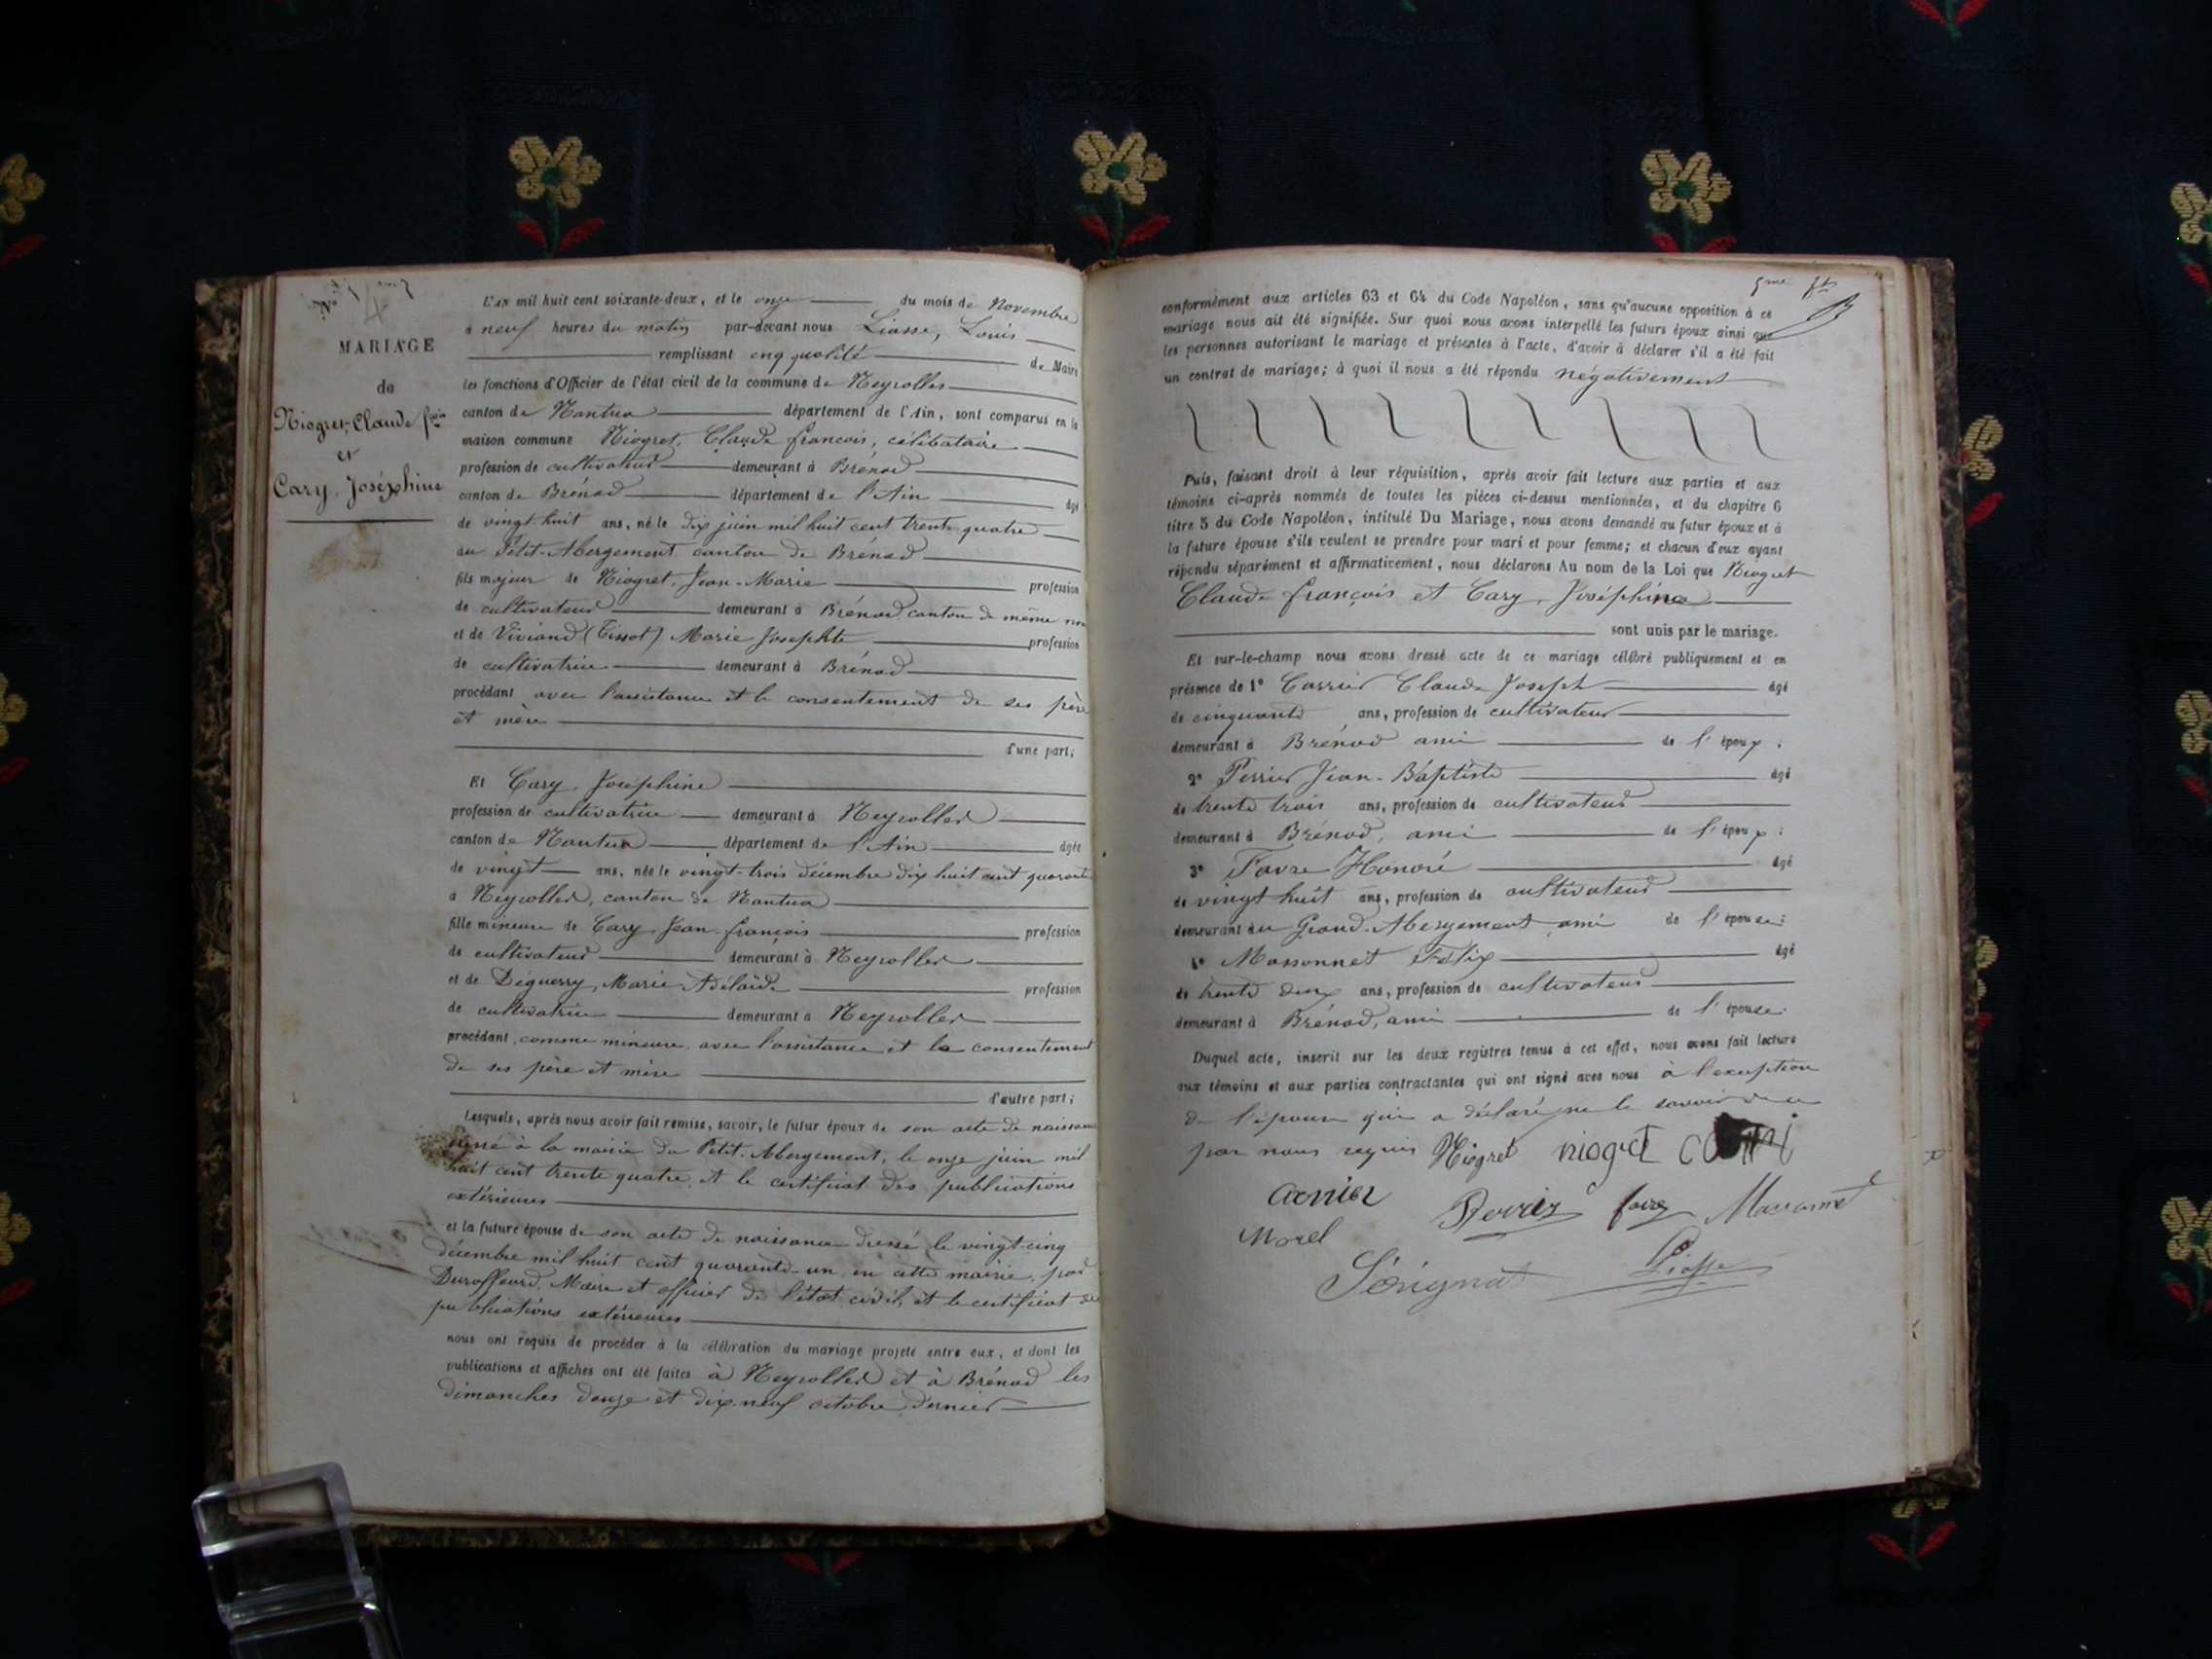 MARIAGE
de
Niogret, Claude fçois
et
Cary, Joséphine
L'an mil huit cent soixante-deux, et le onze du mois de Novembre
à neuf heures du matin par-devant nous Liasse, Louis
remplissant en qualité de Maire
les fonctions d'Officier de l'état civil de la commune de Neyrolles
canton de Nantua département de l'Ain, sont comparus en la
maison commune Niogret, Claude françois, célibataire
profession de cultivateur demeurant à Brénod
canton de Brénod département de l'Ain âgé
de vingt huit ans, né le dix juin mil huit cent trente quatre
au Petit-Abergement canton de Brénod
fils majeur de Niogret, Jean-Marie profession
de cultivateur demeurant à Brénod canton de même nom
et de Viviand (Tissot) Marie Josephte profession
de cultivatrice demeurant à Brénod
procédant avec l'assistance et le consentement de ses père
et mère
d'une part;
Et Cary, Joséphine
profession de cultivatrice demeurant à Neyrolles
canton de Nantua département de l'Ain âgée
de vingt ans, née le vingt-trois décembre dix huit cent quarante
à Neyrolles, canton de Nantua
fille mineure de Cary, Jean-françois profession
de cultivateur demeurant à Neyrolles
et de Déguerry, Marie-Adélaïde profession
de cultivatrice demeurant à Neyrolles
procédant, comme mineure, avec l'assistance et le consentement
de ses père et mère
d'autre part;
Lesquels, après nous avoir fait remise, savoir, le futur époux de son acte de naissance
dressé à la mairie du Petit-Abergement, le onze juin mil
huit cent trente quatre, et le certificat des publications
extérieures
et la future épouse de son acte de naissance dressé le vingt-cinq
décembre mil huit cent quarante-un, en cette mairie, par
Duraffourd, Maire et officier de l'état civil, et le certificat de
publications extérieures
nous ont requis de procéder à la célébration du mariage projeté entre eux, et dont les
publications et affiches ont été faites à Neyrolles et à Brénod les
dimanches douze et dix-neuf octobre dernier
5me
conformément aux articles 63 et 64 du Code Napoléon, sans qu'aucune opposition à ce
mariage nous ait été signifiée. Sur quoi nous avons interpellé les futurs époux ainsi que
les personnes autorisant le mariage et présentes à l'acte, d'avoir à déclarer s'il a été fait
un contrat de mariage; à quoi il nous a été répondu négativement
Puis, faisant droit à leur réquisition, après avoir fait lecture aux parties et aux
témoins ci-après nommés de toutes les pièces ci-dessus mentionnées, et du chapitre 6
titre 5 du Code Napoléon, intitulé Du Mariage, nous avons demandé au futur époux et à
la future épouse s'ils veulent se prendre pour mari et pour femme; et chacun d'eux ayant
répondu séparément et affirmativement, nous déclarons Au nom de la Loi que Niogret
Claude françois et Cary, Joséphine
sont unis par le mariage.
Et sur-le-champ nous avons dressé acte de ce mariage célébré publiquement et en
présence de 1° Carrier Claude Joseph âgé
de cinquante ans, profession de cultivateur
demeurant à Brénod ami de l'époux;
2° Perrier Jean-Baptiste âgé
de trente trois ans, profession de cultivateur
demeurant à Brénod, ami de l'époux;
3° Favre Honoré âgé
de vingt huit ans, profession de cultivateur
demeurant au Grand-Abergement, ami de l'épouse;
4° Massonnet Félix âgé
de trente deux ans, profession de cultivateur
demeurant à Brénod, ami de l'épouse.
Duquel acte, inscrit sur les deux registres tenus à cet effet, nous avons fait lecture
aux témoins et aux parties contractantes qui ont signé avec nous à l'exception
de l'épouse qui a déclaré ne le savoir de ce
par nous requis Niogret niogret
Morel
Massonnet
Liasse